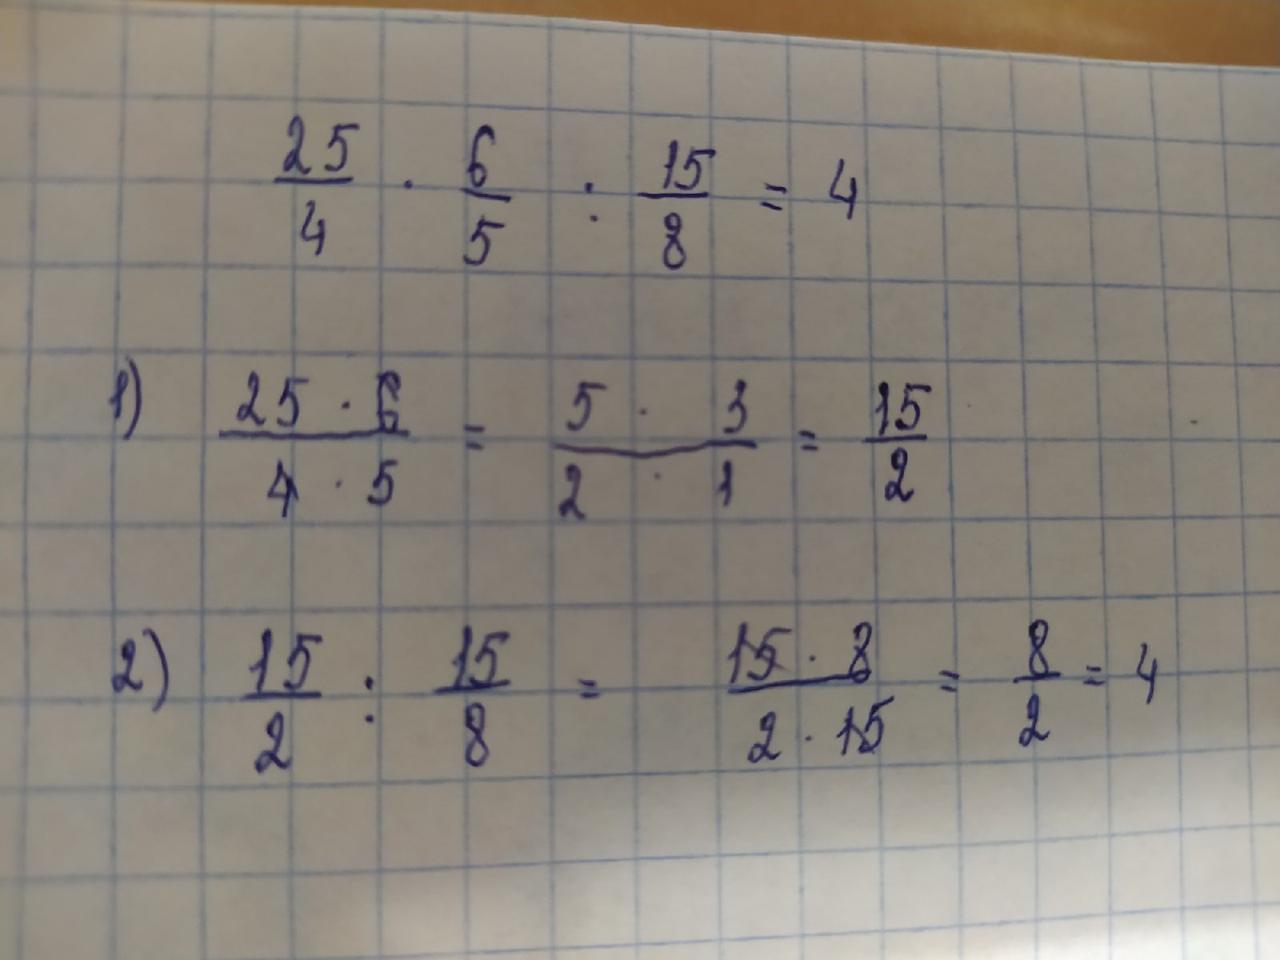 25/4 · 6/5 : 15/8 = 4
1) 25 · 6 / 4 · 5 = 5 · 3 / 2 · 1 = 15/2
2) 15/2 : 15/8 = 15 · 8 / 2 · 15 = 8/2 = 4